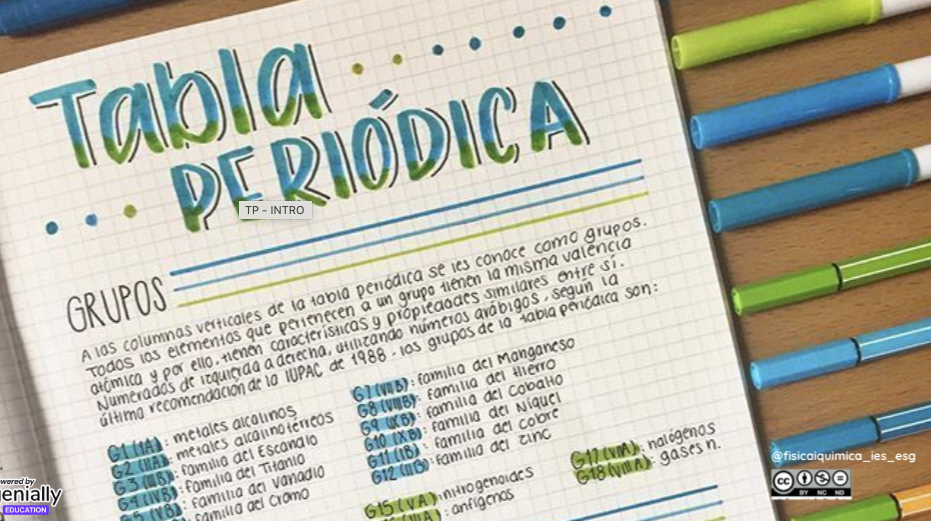 Tabla
PERIÓDICA
TP - INTRO
GRUPOS
A las columnas verticales de la tabla periódica se les conoce como grupos.
Todos los elementos que pertenecen a un grupo tienen la misma valencia
atómica y por ello, tienen características y propiedades similares entre sí.
Numerados de izquierda a derecha, utilizando números arábigos, según la
última recomendación de la IUPAC de 1988, los grupos de la tabla periódica son:
G1 (IA): metales alcalinos
G2 (IIA): metales alcalinotérreos
G3 (IIIB): familia del Escandio
G4 (IVB): familia del Titanio
G5 (VB): familia del Vanadio
familia del Cromo
G7 (VIIB): familia del Manganeso
G8 (VIIIB): familia del Hierro
G9 (IXB): familia del Cobalto
G10 (XB): familia del Níquel
G11 (IB): familia del Cobre
G12 (IIB): familia del Zinc
G15 (VA): nitrogenoides
: anfígenos
G17 (VIIA): halógenos
G18 (VIIIA): gases n.
@fisicaiquimica_ies_esg
CC BY NC ND
powered by
genially
EDUCATION